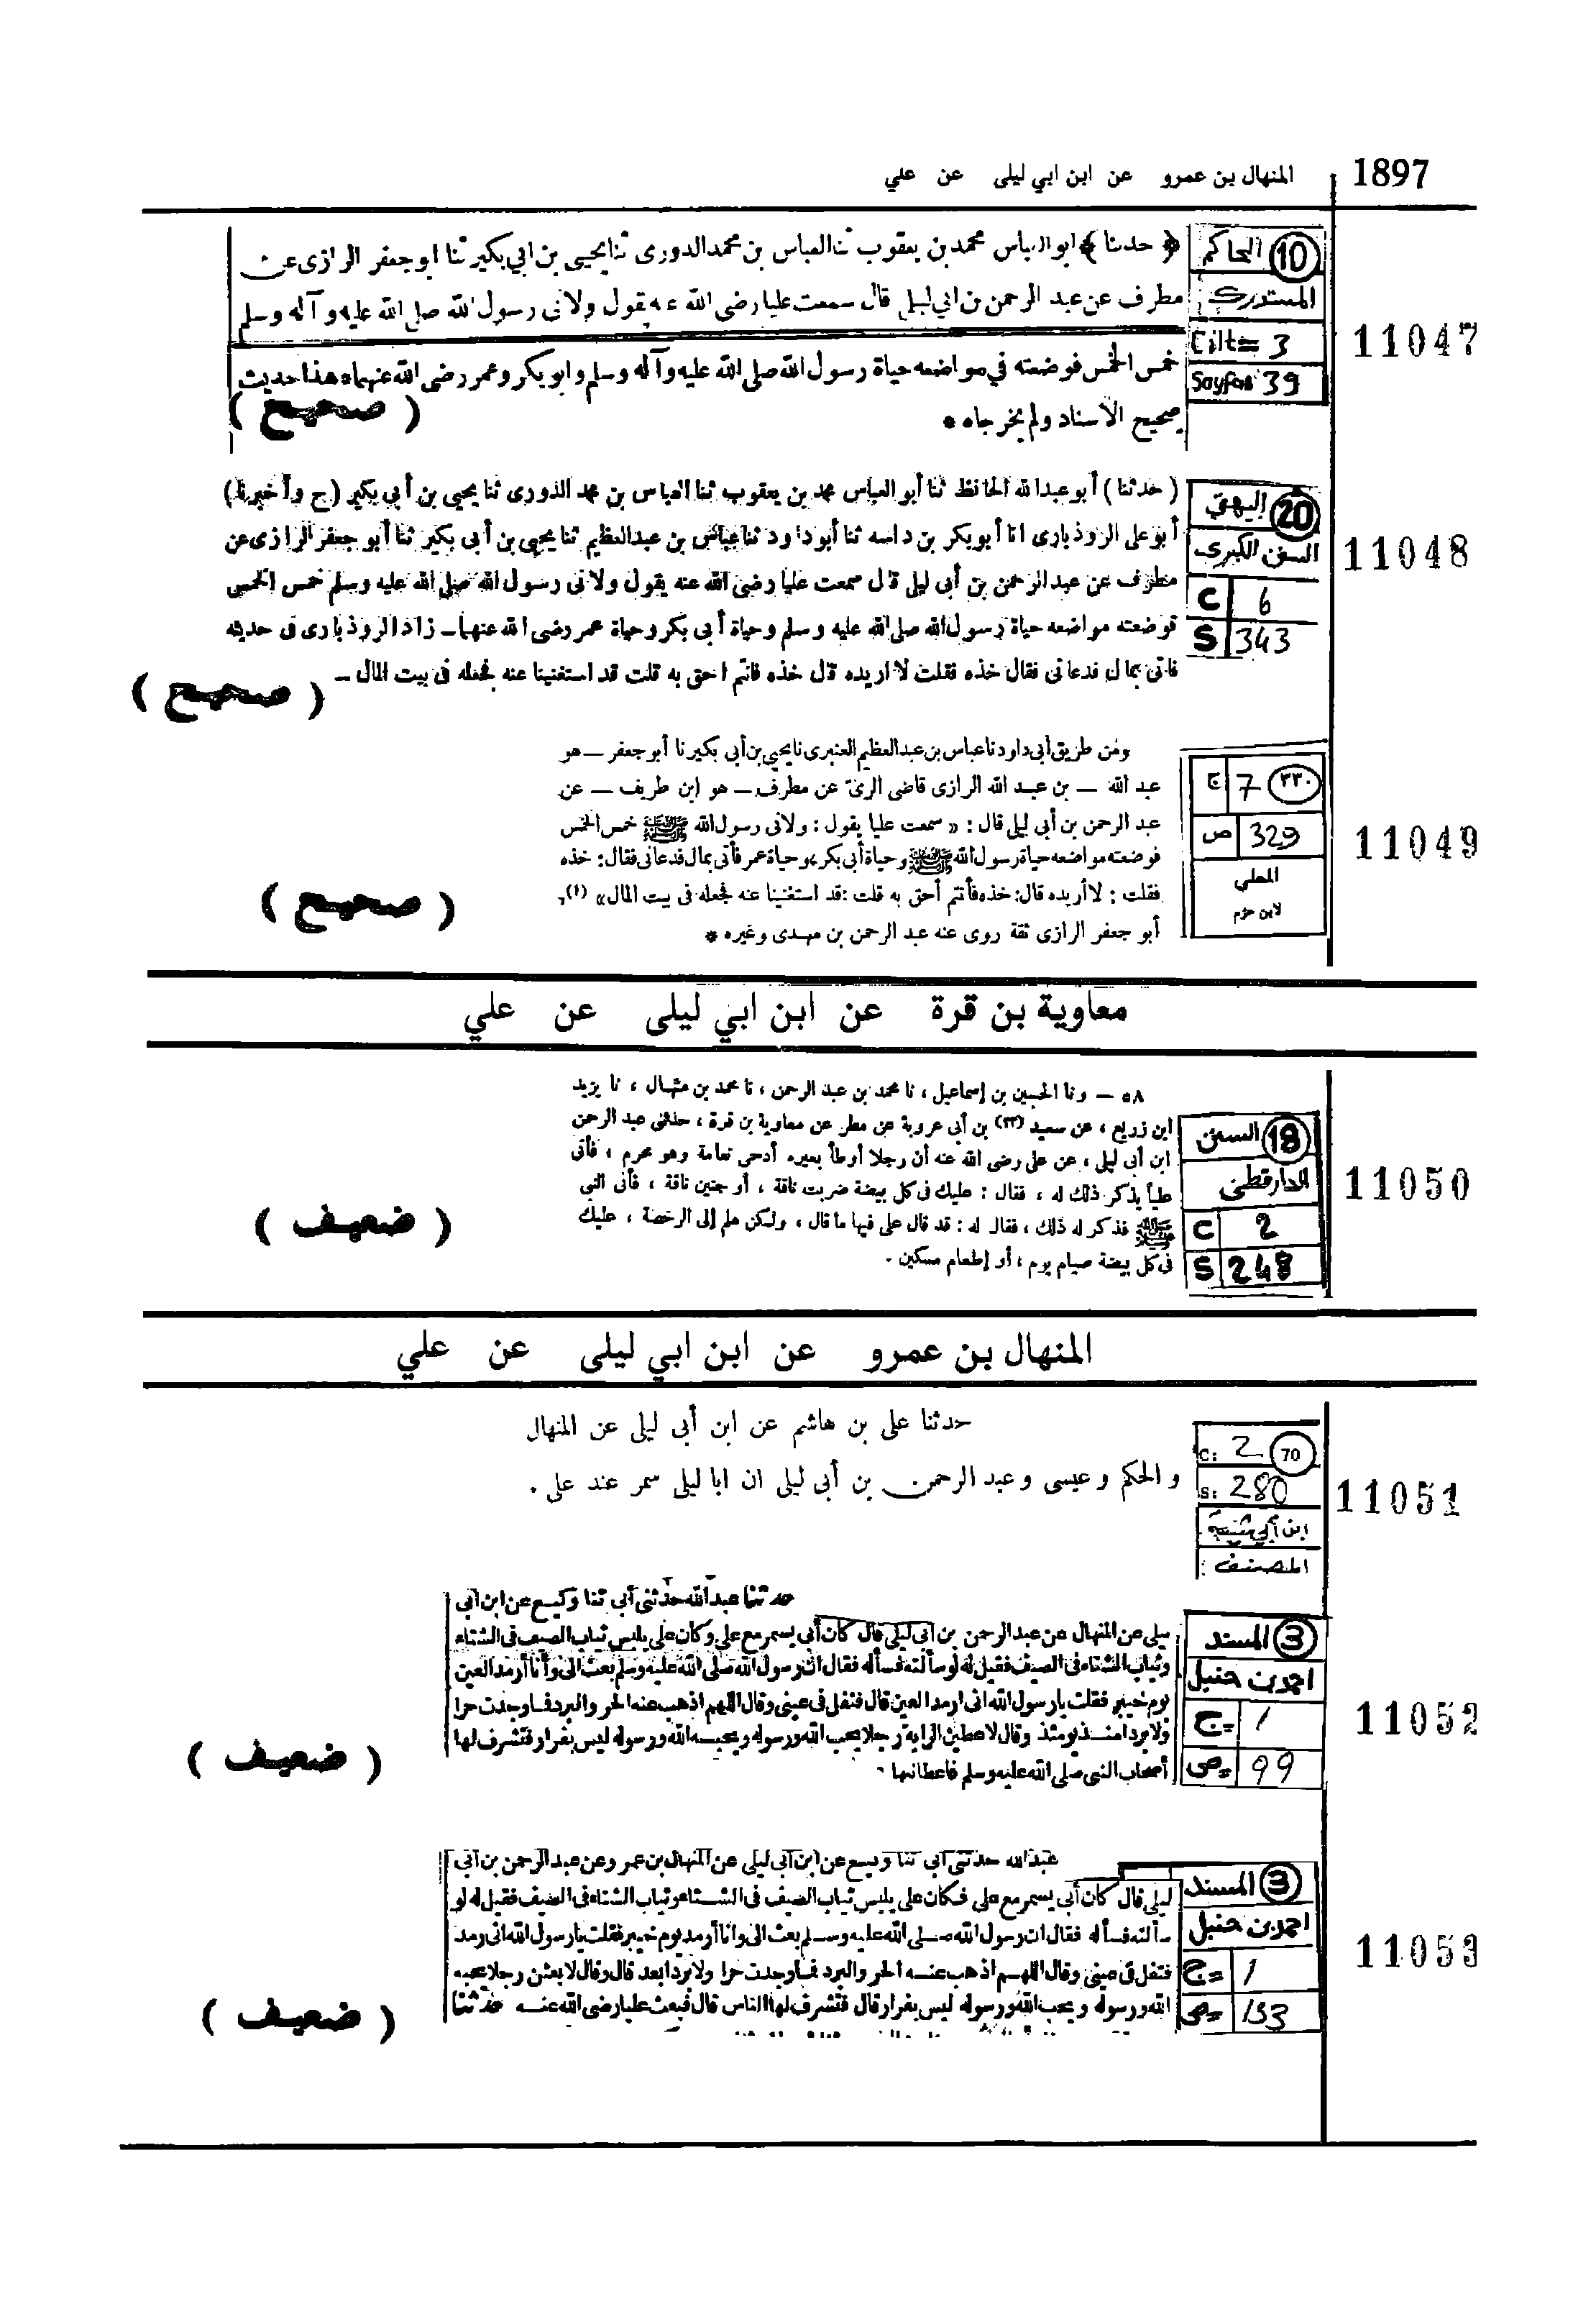 1897 المنهال بن عمرو عن ابن ابي ليلى عن علي
10 الحاكم
المستدرك
Cilt= 3
Sayfa= 39
11047
﴿ حدثنا ﴾ ابو العباس محمد بن يعقوب ثنا العباس بن محمد الدورى ثنا يحيى بن ابي بكير ثنا ابو جعفر الرازى عن
مطرف عن عبد الرحمن بن ابي ليلى قال سمعت عليا رضى الله عنه يقول ولانى رسول الله صلى الله عليه و آله وسلم
خمس الخمس فوضعته في مواضعه حياة رسول الله صلى الله عليه وآله وسلم وابو بكر وعمر رضى الله عنهما هذا حديث
صحيح الاسناد ولم يخرجاه *
( صحيح )
20 البيهقي
السنن الكبرى
C 6
S 343
11048
( حدثنا ) أبو عبد الله الحافظ ثنا أبو العباس محمد بن يعقوب ثنا العباس بن محمد الدورى ثنا يحيى بن أبي بكير (ح وأخبرنا)
أبو على الروذبارى انا أبو بكر بن داسه ثنا أبو داود ثنا عباس بن عبدالعظيم ثنا يحيى بن أبى بكير ثنا أبو جعفر الرازى عن
مطرف عن عبد الرحمن بن أبى ليلى قال سمعت عليا رضى الله عنه يقول ولانى رسول الله صلى الله عليه وسلم خمس الخمس
فوضعته مواضعه حياة رسول الله صلى الله عليه وسلم وحياة أبي بكر وحياة عمر رضى الله عنهما - زاد الروذبارى فى حديثه
فاتى بمال فدعانى فقال خذه فقلت لا اريده قال خذه فانتم احق به قلت قد استغنينا عنه فجعله فى بيت المال -
( صحيح )
٣٣٠ 7 ج
329 ص
المحلي
لابن حزم
11049
ومن طريق أبى داود نا عباس بن عبد العظيم العنبرى نا يحيى بن أبى بكير نا أبو جعفر - هو
عبد الله - بن عبد الله الرازى قاضى الرى عن مطرف - هو ابن طريف - عن
عبد الرحمن بن أبى ليلى قال : « سمعت عليا يقول : ولانى رسول الله ﷺ خمس الخمس
فوضعته مواضعه حياة رسول الله ﷺ وحياة أبى بكر، وحياة عمر فأتى بمال فدعانى فقال : خذه
فقلت : لا أريده قال: خذه فأنتم أحق به قلت : قد استغنينا عنه فجعله فى بيت المال » (١)،
أبو جعفر الرازى ثقة روى عنه عبد الرحمن بن مهدى وغيره *
( صحيح )
معاوية بن قرة عن ابن ابي ليلى عن علي
18 السنن
الدارقطني
C 2
S 248
11050
٥٨ - ونا الحسين بن إسماعيل ، نا محمد بن عبد الرحمن ، نا محمد بن منهال ، نا يزيد
ابن زريع ، عن سعيد (٢٣) بن أبى عروبة عن مطر عن معاوية بن قرة ، حدثنى عبد الرحمن
ابن أبى ليلى ، عن على رضى الله عنه أن رجلا أوطأ بعيره أدحى نعامة وهو محرم ، فأتى
علياً يذكر ذلك له ، فقال : عليك فى كل بيضة ضربت ناقة ، أو جنين ناقة ، فأتى النبى
ﷺ فذكر له ذلك ، فقال له : قد قال على فيها ما قال ، ولكن هلم إلى الرخصة ، عليك
فى كل بيضة صيام يوم ، أو إطعام مسكين .
( ضعيف )
المنهال بن عمرو عن ابن ابي ليلى عن علي
C: 2 70
S: 280
ابن أبي شيبة
المصنف :
11051
حدثنا على بن هاشم عن ابن أبى ليلى عن المنهال
و الحكم و عيسى و عبد الرحمن بن أبى ليلى ان ابا ليلى سمر عند على .
3 المسند
احمد بن حنبل
ج= 1
ص= 99
11052
حدثنا عبد الله حدثنى أبى ثنا وكيع عن ابن أبى
ليلى عن المنهال عن عبد الرحمن بن أبى ليلى قال كان أبى يسمر مع على وكان على يلبس ثياب الصيف فى الشتاء
وثياب الشتاء فى الصيف فقيل له لو سألته فسأله فقال ان رسول الله صلى الله عليه وسلم بعث الى وأنا أرمد العين
يوم خيبر فقلت يا رسول الله انى ارمد العين قال فتفل فى عينى وقال اللهم اذهب عنه الحر والبرد فما وجدت حرا
ولا بردا منذ يومئذ وقال لاعطين الراية رجلا يحب الله ورسوله ويحبه الله ورسوله ليس بفرار فتشرف لها
أصحاب النبى صلى الله عليه وسلم فاعطانيها .
( ضعيف )
3 المسند
احمد بن حنبل
ج= 1
ص= 133
11053
عبد الله حدثنى أبى ثنا وكيع عن ابن أبى ليلى عن المنهال بن عمرو عن عبد الرحمن بن أبى
ليلى قال كان أبى يسمر مع على فكان على يلبس ثياب الصيف فى الشتاء وثياب الشتاء فى الصيف فقيل له لو
سألته فسأله فقال ان رسول الله صلى الله عليه وسلم بعث الى وانا أرمد يوم خيبر فقلت يا رسول الله انى رمد
فتفل فى عينى وقال اللهم اذهب عنه الحر والبرد فما وجدت حرا ولا بردا بعد قال وقال لا بعثن رجلا يحبه
الله ورسوله ويحب الله ورسوله ليس بفرار قال فتشرف لها الناس قال فبعث عليا رضى الله عنه حدثنا
( ضعيف )